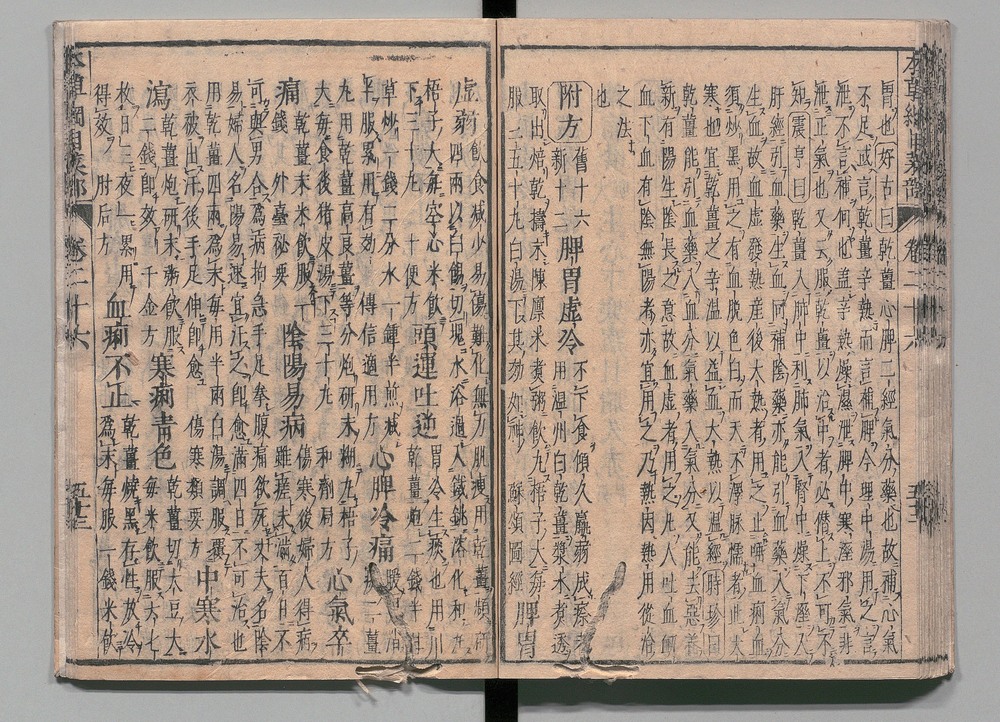 本草綱目菜部 卷二十六 五十三
胃也好古曰乾薑心脾二經氣分藥也故補心氣
不足或言乾薑辛熱而言補脾今理中湯用之言
泄不言補何也盖辛熱燥濕泄脾中寒溼邪氣非
泄正氣也又云服乾薑以治中者必僭上不可不
知震亨曰乾薑入肺中利肺氣入腎中燥下溼入
肝經引血藥生血同補陰藥亦能引血藥入氣分
生血故血虛發熱產後大熱者用之止唾血痢血
須炒黑用之有血脫色白而夭不澤脉濡者此大
寒也宜乾薑之辛溫以益血大熱以溫經時珍曰
乾薑能引血藥入血分氣藥入氣分又能去惡養
新有陽生陰長之意故血虛者用之凡人吐血衄
血下血有陰無陽者亦宜用之乃熱因熱用從治
之法
也
附方 舊十六新十二 脾胃虛冷 不下食積久羸弱成瘵者用溫州白乾薑漿水煮透
取出焙乾擣末陳廩米煮粥飲丸梧子大每服三五十丸白湯下其効如神 蘇頌圖經 脾胃
虛弱 飲食減少易傷難化無力肌瘦用乾薑頻研四兩以白餳切塊水浴過入鐵銚溶化和丸
梧子大每空心米飲下三十丸 十便方 頭運吐逆 胃冷生痰也用川乾薑炮二錢半甘
草炒一錢二分水一鍾半煎減半服累用有効 傳信適用方 心脾冷痛 暖胃消痰二薑
丸用乾薑高良薑等分炮研末糊丸梧子大每食後猪皮湯下三十丸 和劑局方 心氣卒
痛 乾薑末米飲服一錢 外臺祕要 陰陽易病 傷寒後婦人得病雖瘥未滿百日不
可與男人合爲病拘急手足拳腹痛欲死丈夫名陰易婦人名陽易速宜汗之即愈滿四日不可治也
用乾薑四兩爲末每用半兩白湯調服覆衣被出汗後手足伸即愈 傷寒類要方 中寒水
瀉 乾薑炮研末粥飲服二錢即效 千金方 寒痢青色 乾薑切大豆大每米飲服六七
枚日三夜一累用得效 肘后方 血痢不止 乾薑燒黑存性放冷爲末每服一錢米飲
本草綱目菜部 卷二十六 五十三